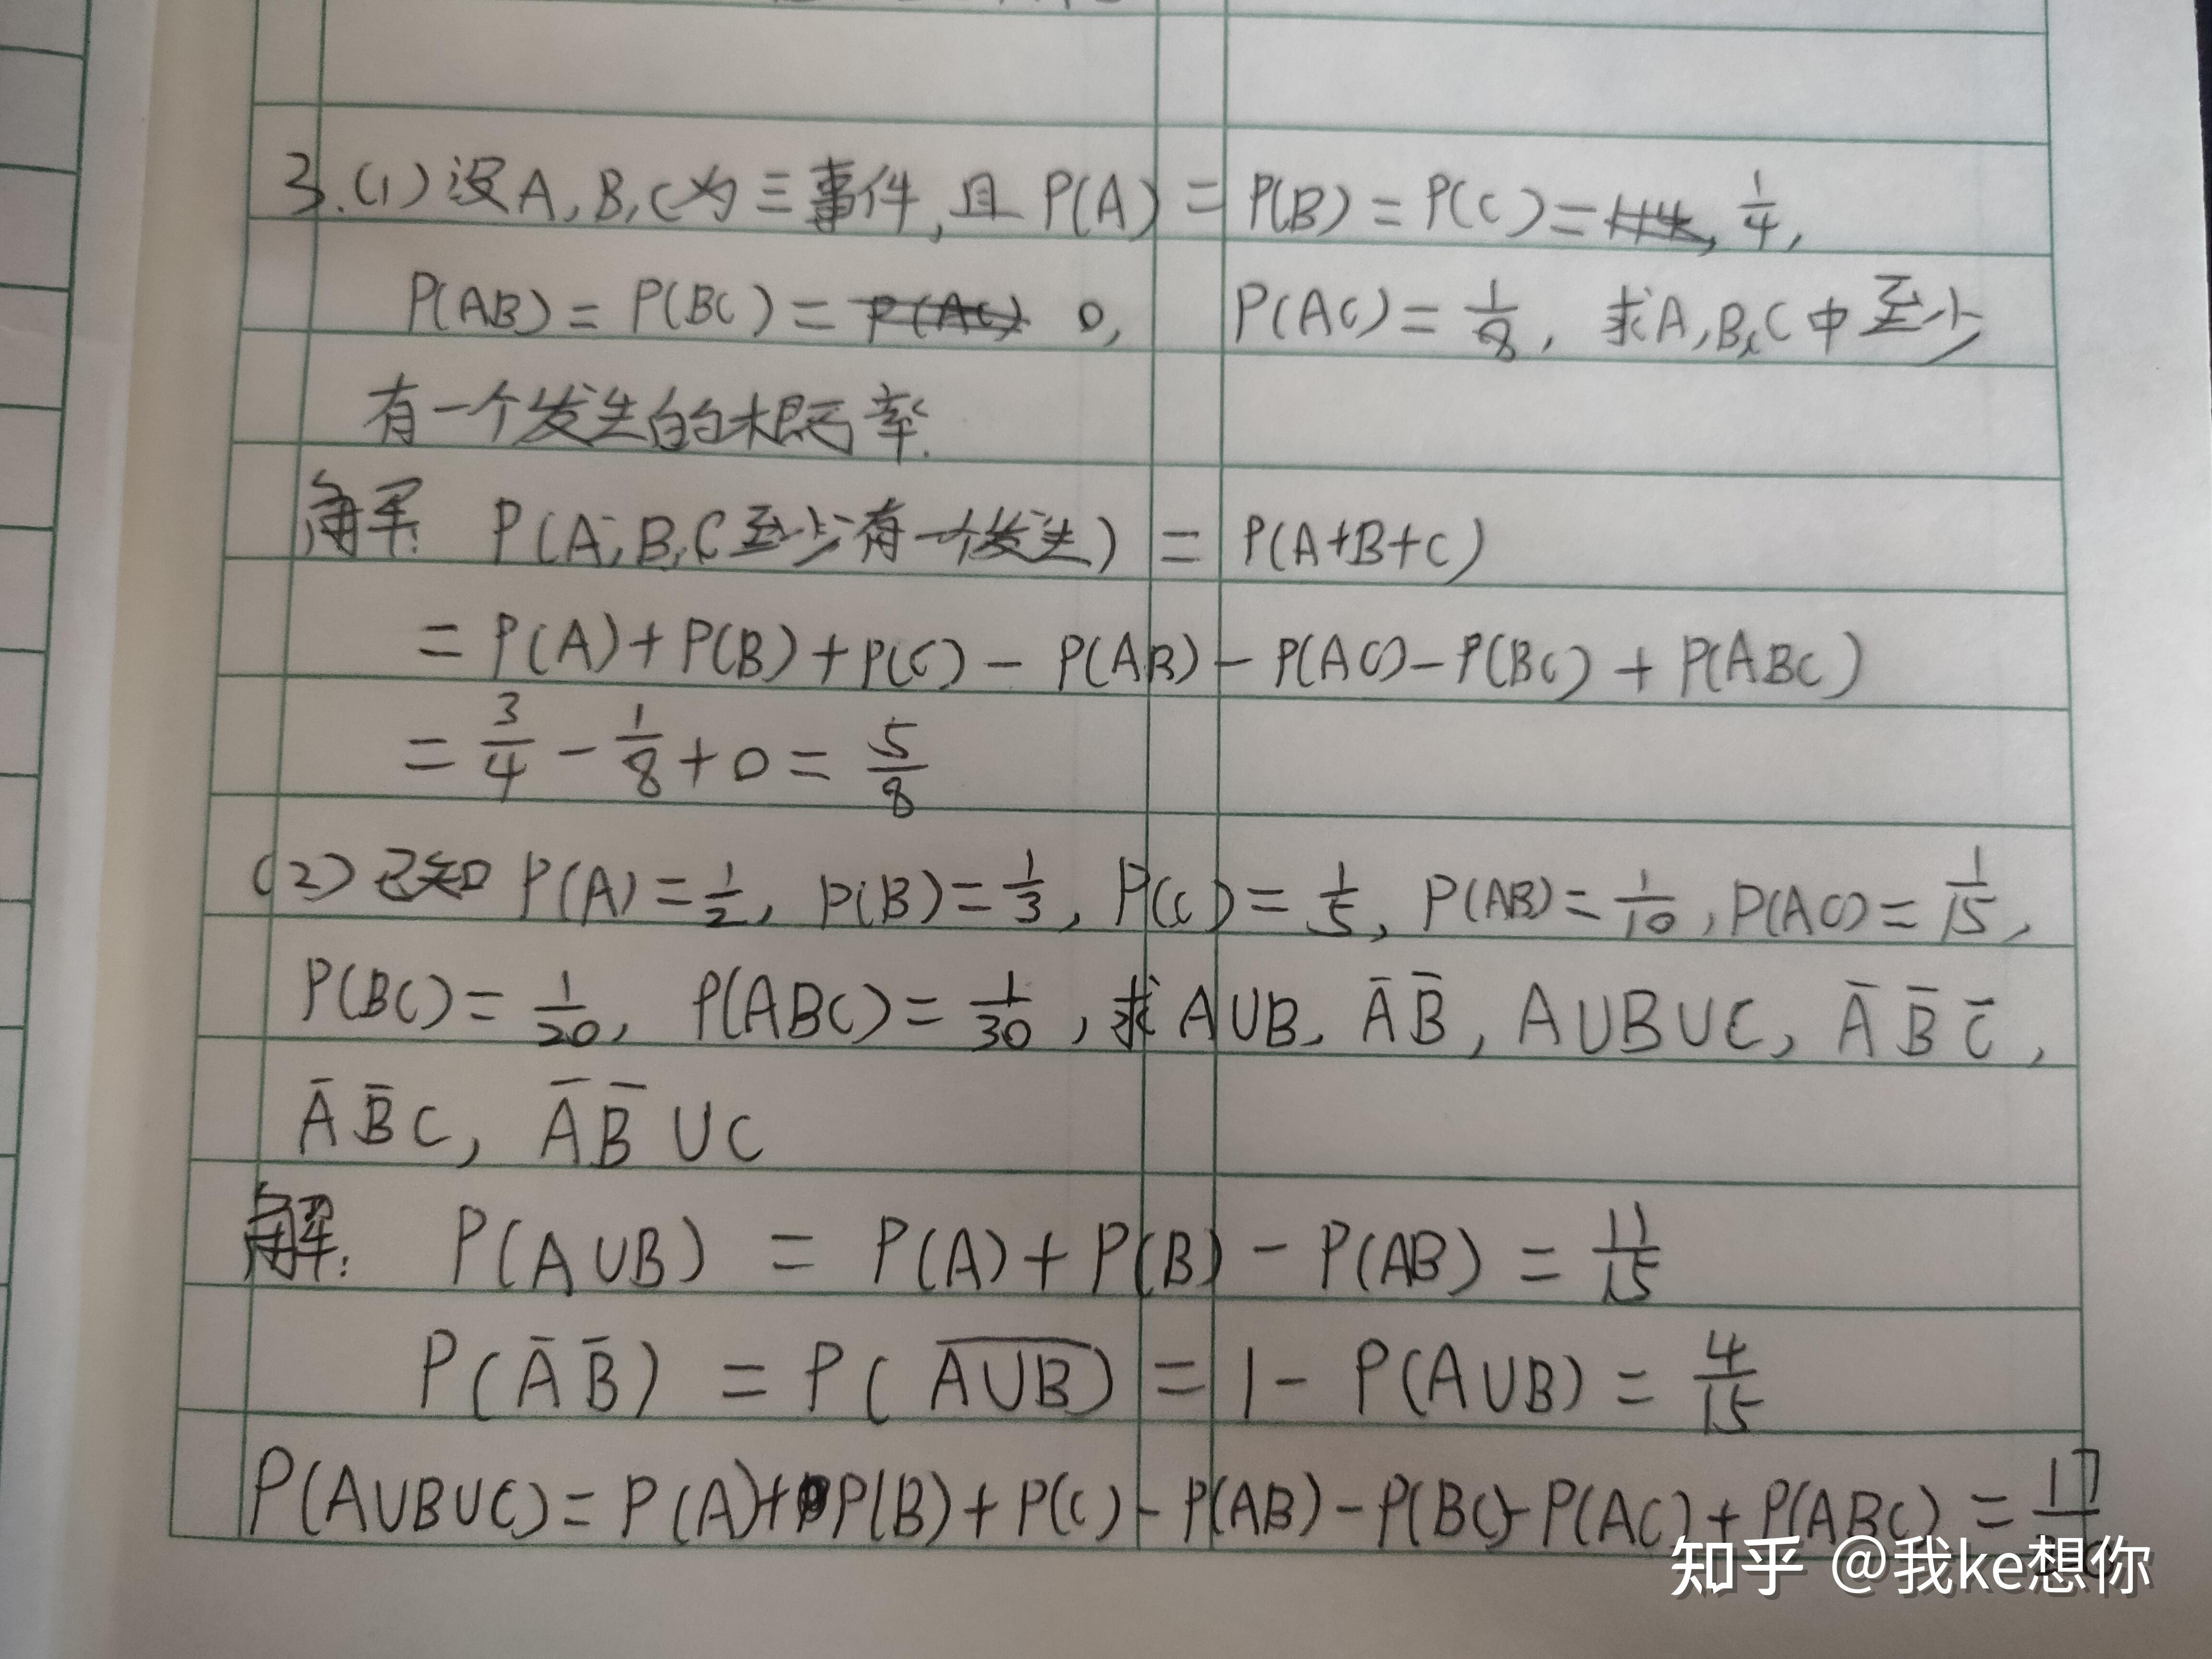 3.(1)设A,B,C为三事件,且P(A)=P(B)=P(C)=1/4,
P(AB)=P(BC)=0, P(AC)=1/8,求A,B,C中至少
有一个发生的概率.
解: P(A,B,C至少有一个发生)=P(A+B+C)
=P(A)+P(B)+P(C)-P(AB)-P(AC)-P(BC)+P(ABC)
=3/4-1/8+0=5/8
(2)已知P(A)=1/2,P(B)=1/3,P(C)=1/5,P(AB)=1/10,P(AC)=1/15,
P(BC)=1/20, P(ABC)=1/30,求A∪B, A̅ B̅, A∪B∪C, A̅ B̅ C̅,
A̅ B̅ C, A̅ B̅ ∪C
解: P(A∪B)=P(A)+P(B)-P(AB)=11/15
P(A̅ B̅)=P(A̅∪̅B̅)=1-P(A∪B)=4/15
P(A∪B∪C)=P(A)+P(B)+P(C)-P(AB)-P(BC)-P(AC)+P(ABC)=17/
知乎 @我ke想你